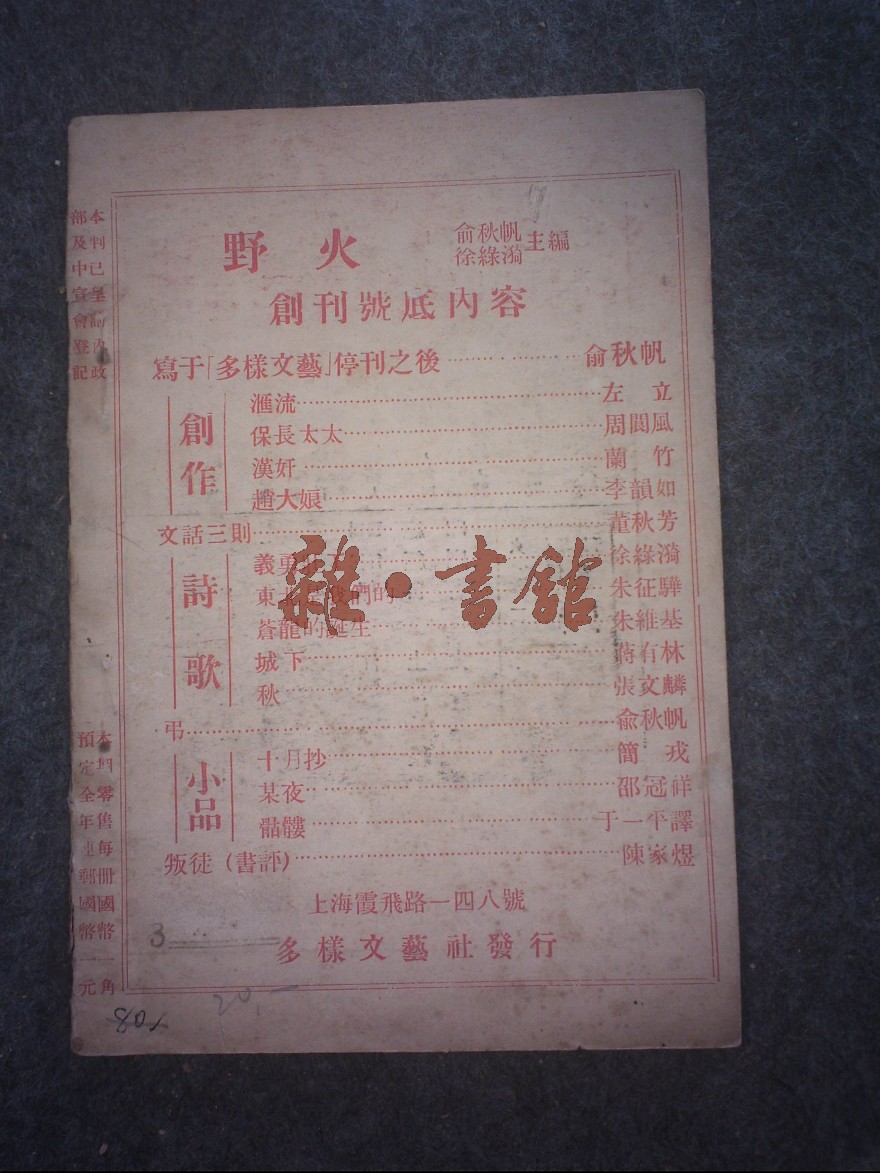 野火
俞秋帆
徐綠漪
主編
創刊號底內容
寫于「多樣文藝」停刊之後……俞秋帆
創作
滙流……左立
保長太太……周閬風
漢奸……蘭竹
趙大娘……李韻如
文話三則……董秋芳
詩歌
義勇……徐綠漪
東北是我們的……朱征驊
蒼龍的誕生……朱維基
城下……蔣有林
秋……張文麟
弔……俞秋帆
小品
十月抄……簡戎
某夜……邵冠祥
骷髏……于一平譯
叛徒(書評)……陳家煜
上海霞飛路一四八號
多樣文藝社發行
本刊已呈請內政
部及中宣會登記
本期零售每冊國幣一角
預定全年連郵國幣一元
雜·書館
3
20.—